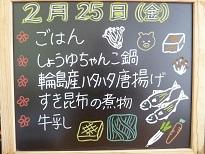 2月25日(金)
ごはん
しょうゆちゃんこ鍋
輪島産ハタハタ唐揚げ
すき昆布の煮物
牛乳